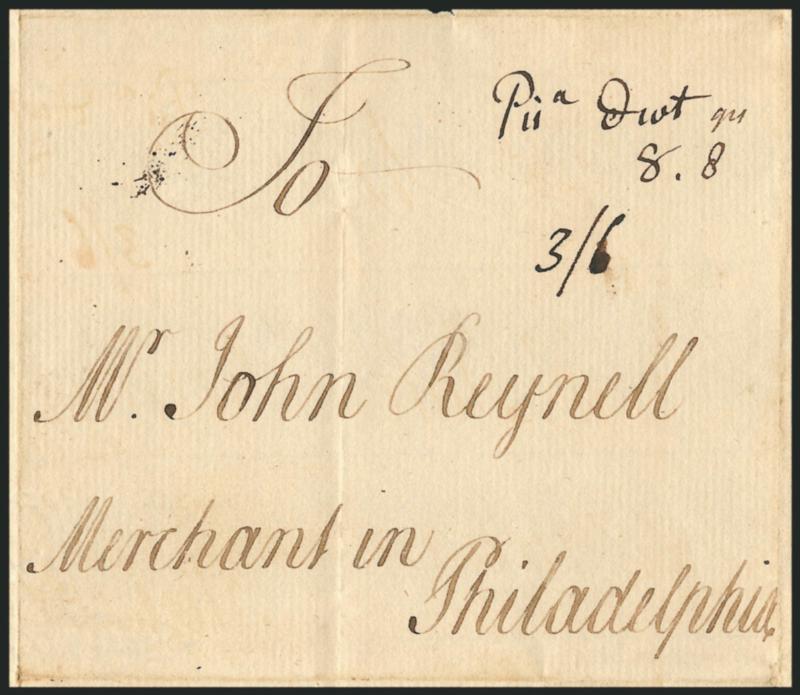 To
Piia Dwt
8. 8
3/6
Mr. John Reynell
Merchant in
Philadelphia